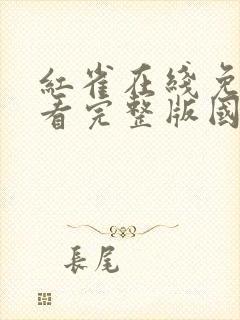 紅雀在綫免
看完整版國
長尾